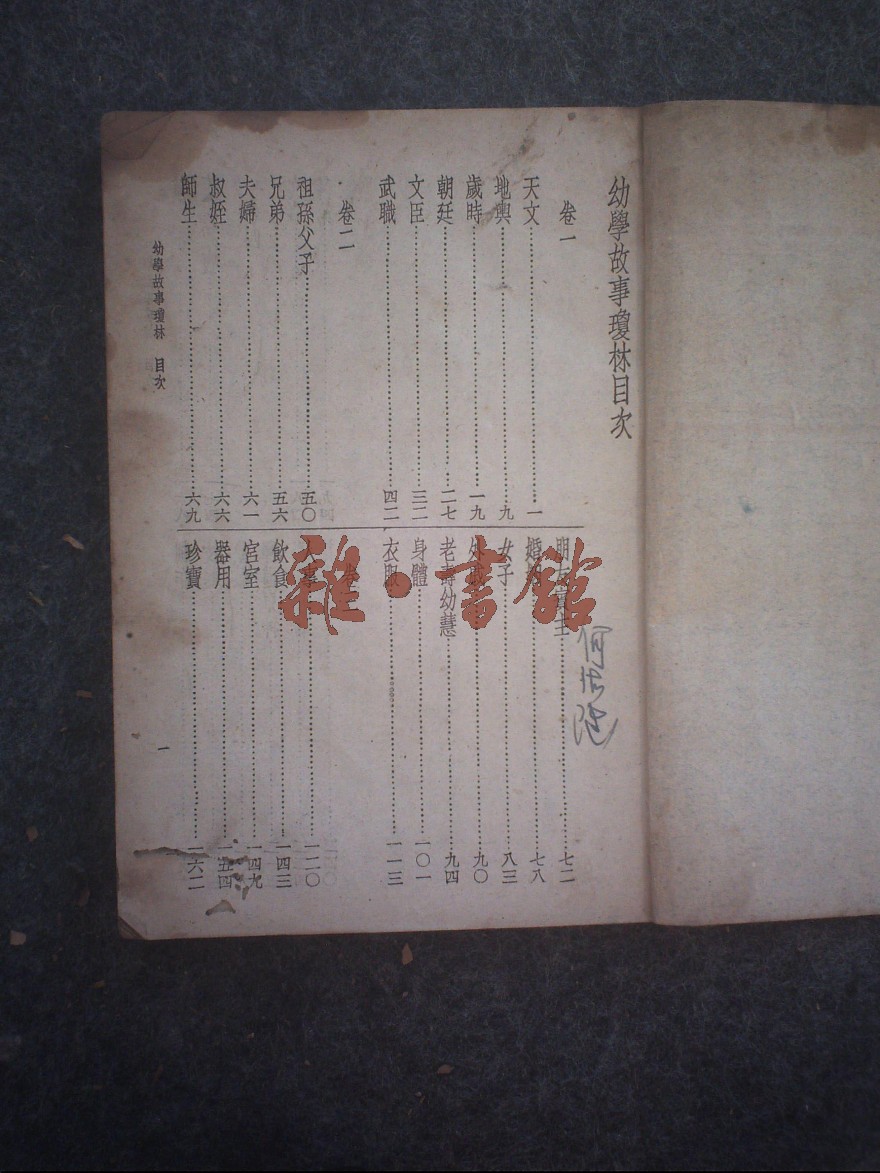 幼學故事瓊林目次
卷一
天文 一
地輿 九
歲時 一九
朝廷 二七
文臣 三二
武職 四二
卷二
祖孫父子 五〇
兄弟 五六
夫婦 六一
叔姪 六六
師生 六九
朋友賓主 七二
婚姻 七八
女子 八三
外戚 九〇
老壽幼慧 九四
身體 一〇一
衣服 一一三
卷三
人事 一二〇
飲食 一四三
宮室 一四九
器用 一五四
珍寶 一六二
幼學故事瓊林 目次
一
雜·書館
何